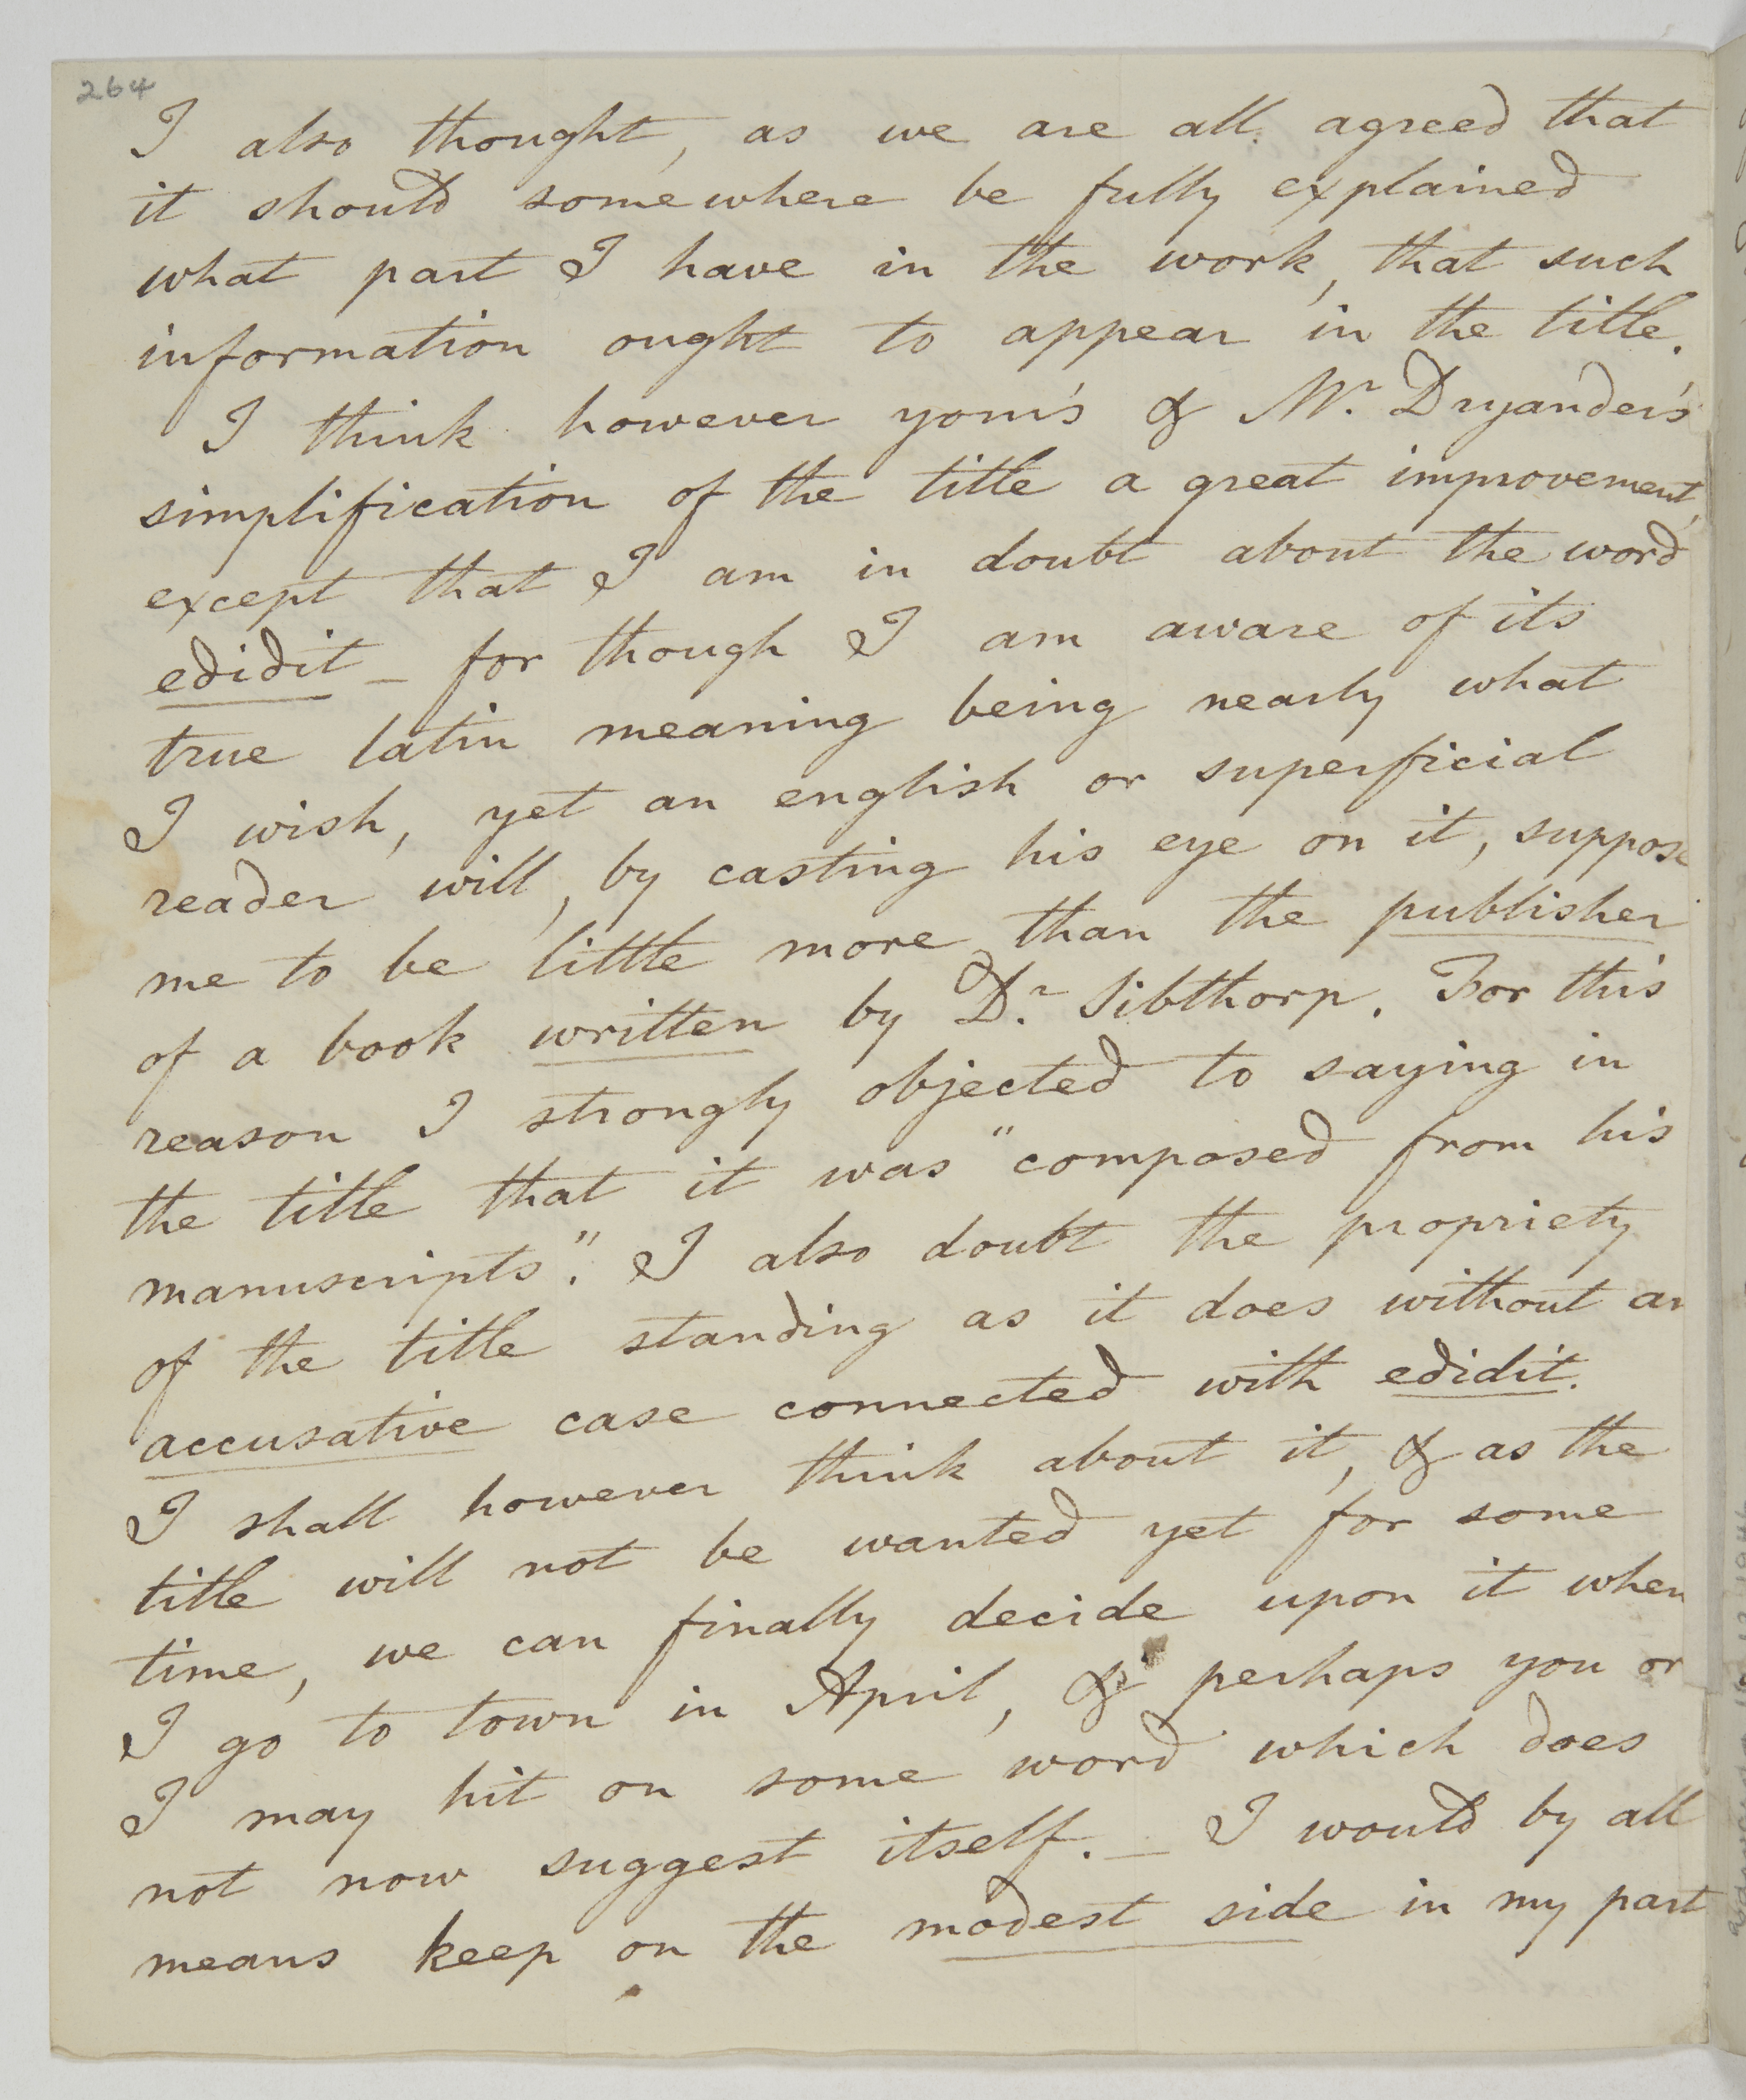 264
I also thought, as we are all agreed that
it should somewhere be fully explained
what part I have in the work, that such
information ought to appear in the title.
I think however your's & Mr. Dryander's
simplification of the title a great improvement,
except that I am in doubt about the word
edidit _ for though I am aware of its
true latin meaning being nearly what
I wish, yet an english or superficial
reader will, by casting his eye on it, suppose
me to be little more than the publisher
of a book written by Dr. Sibthorp. For this
reason I strongly objected to saying in
the title that it was "composed from his
manuscripts". I also doubt the propriety
of the title standing as it does without an
accusative case connected with edidit.
I shall however think about it, & as the
title will not be wanted yet for some
time, we can finally decide upon it when
I go to town in April, & perhaps you or
I may hit on some word which does
not now suggest itself. _ I would by all
means keep on the modest side in my part